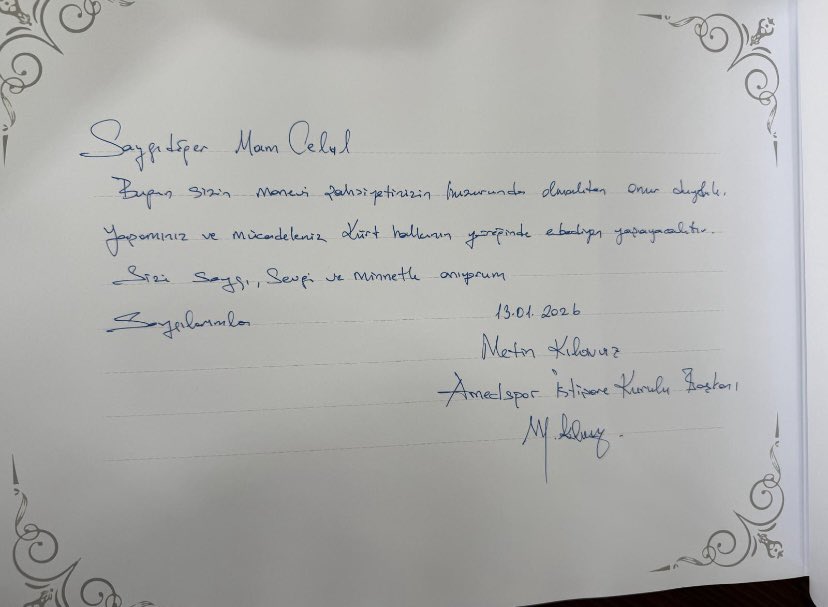 Saygıdeğer Mam Celal
Bugün sizin manevi şahsiyetinizin huzurunda olmaktan onur duyduk.
Yaşamınız ve mücadeleniz Kürt halkının yüreğinde ebediyen yaşayacaktır.
Sizi saygı, sevgi ve minnetle anıyorum
Saygılarımla
13.01.2026
Metin Kılavuz
Amedspor İstişare Kurulu Başkanı